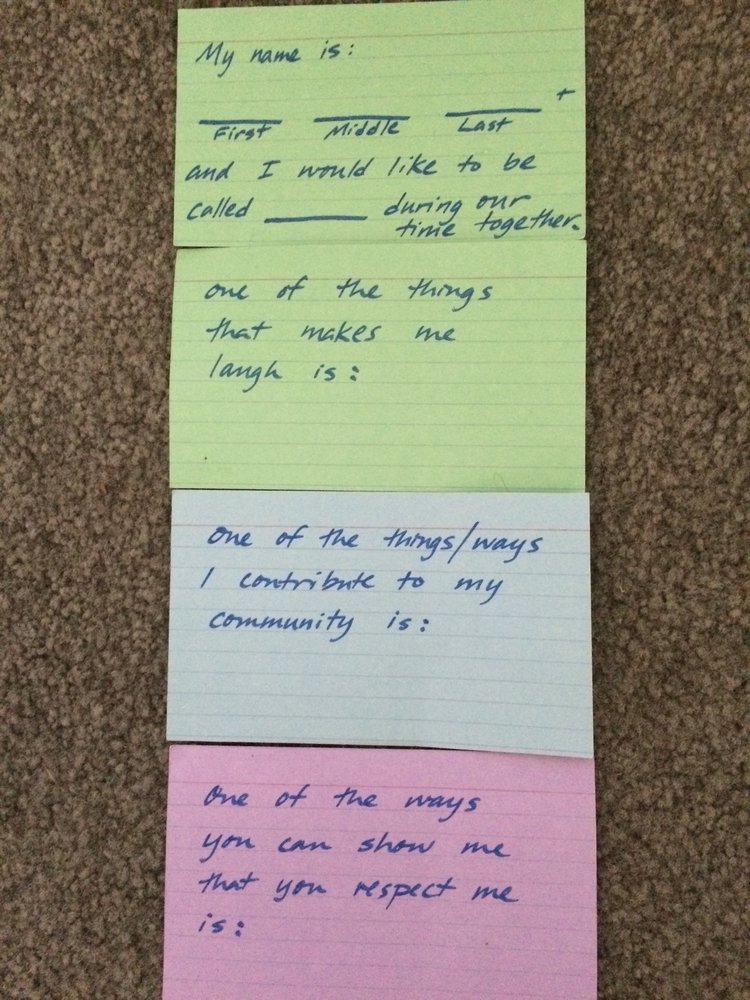 My name is:
____ ____ ____ +
First Middle Last
and I would like to be
called ____ during our
time together.
one of the things
that makes me
laugh is:
One of the things/ways
I contribute to my
community is:
One of the ways
you can show me
that you respect me
is: